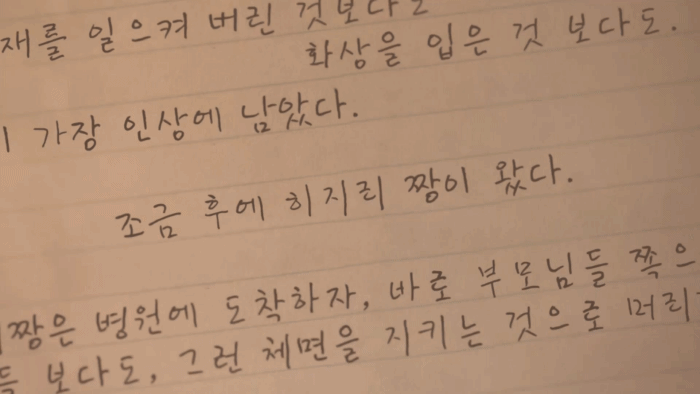 재를 일으켜 버린 것보다도
화상을 입은 것 보다도.
가장 인상에 남았다.
조금 후에 히지리 짱이 왔다.
짱은 병원에 도착하자, 바로 부모님들 쪽으
보다도, 그런 체면을 지키는 것으로 머리